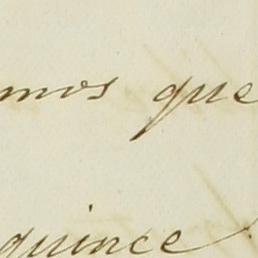 mos que
quince